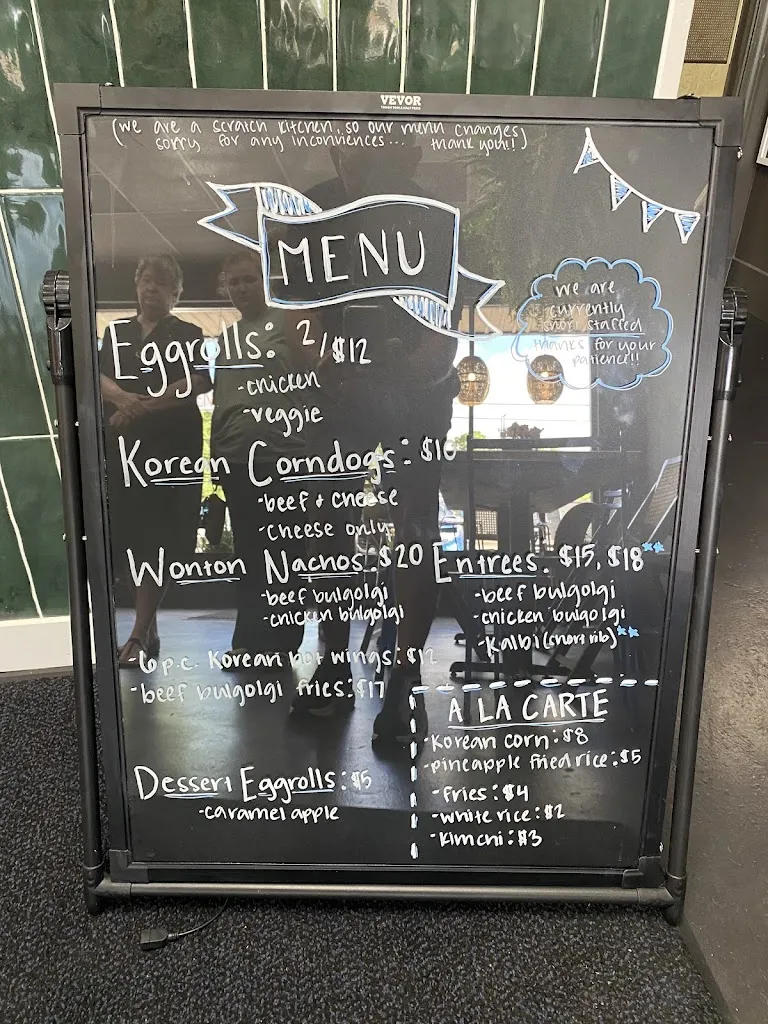 VEVOR
(we are a scratch kitchen, so our menu changes)
sorry for any inconviences... thank you!!)
MENU
we are
currently
short staffed
thanks for your
patience!!
Eggrolls: 2/$12
-chicken
-veggie
Korean Corndogs: $10
-beef + cheese
-cheese only
Wonton Nachos: $20
-beef bulgolgi
-chicken bulgolgi
-6 p.c. Korean hot wings: $12
-beef bulgolgi fries: $17
Dessert Eggrolls: $5
-caramel apple
Entrees: $15, $18**
-beef bulgolgi
-chicken bulgolgi
-Kalbi (short rib)**
A LA CARTE
-Korean corn: $8
-pineapple fried rice: $5
-fries: $4
-white rice: $2
-kimchi: $3